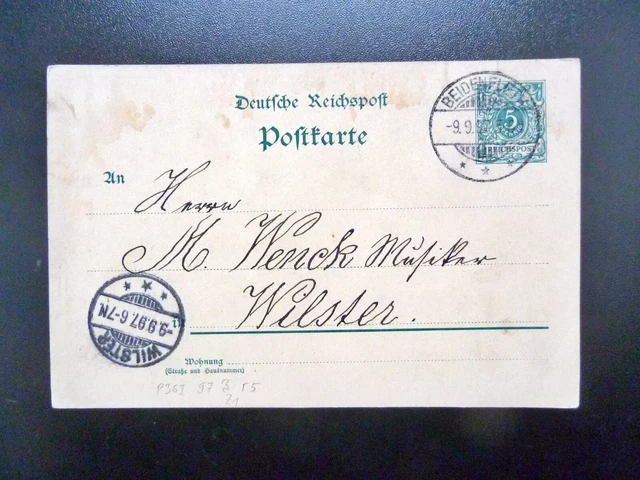 Deutsche Reichspost
Postkarte
BEIDENFLETH
-9.9.97
5
REICHSPOST
An
Herrn
M. Wenck Musiker
in Wilster.
WILSTER
-9.9.97. 6-7N.
Wohnung
(Straße und Hausnummer)
P36I 97 Z1